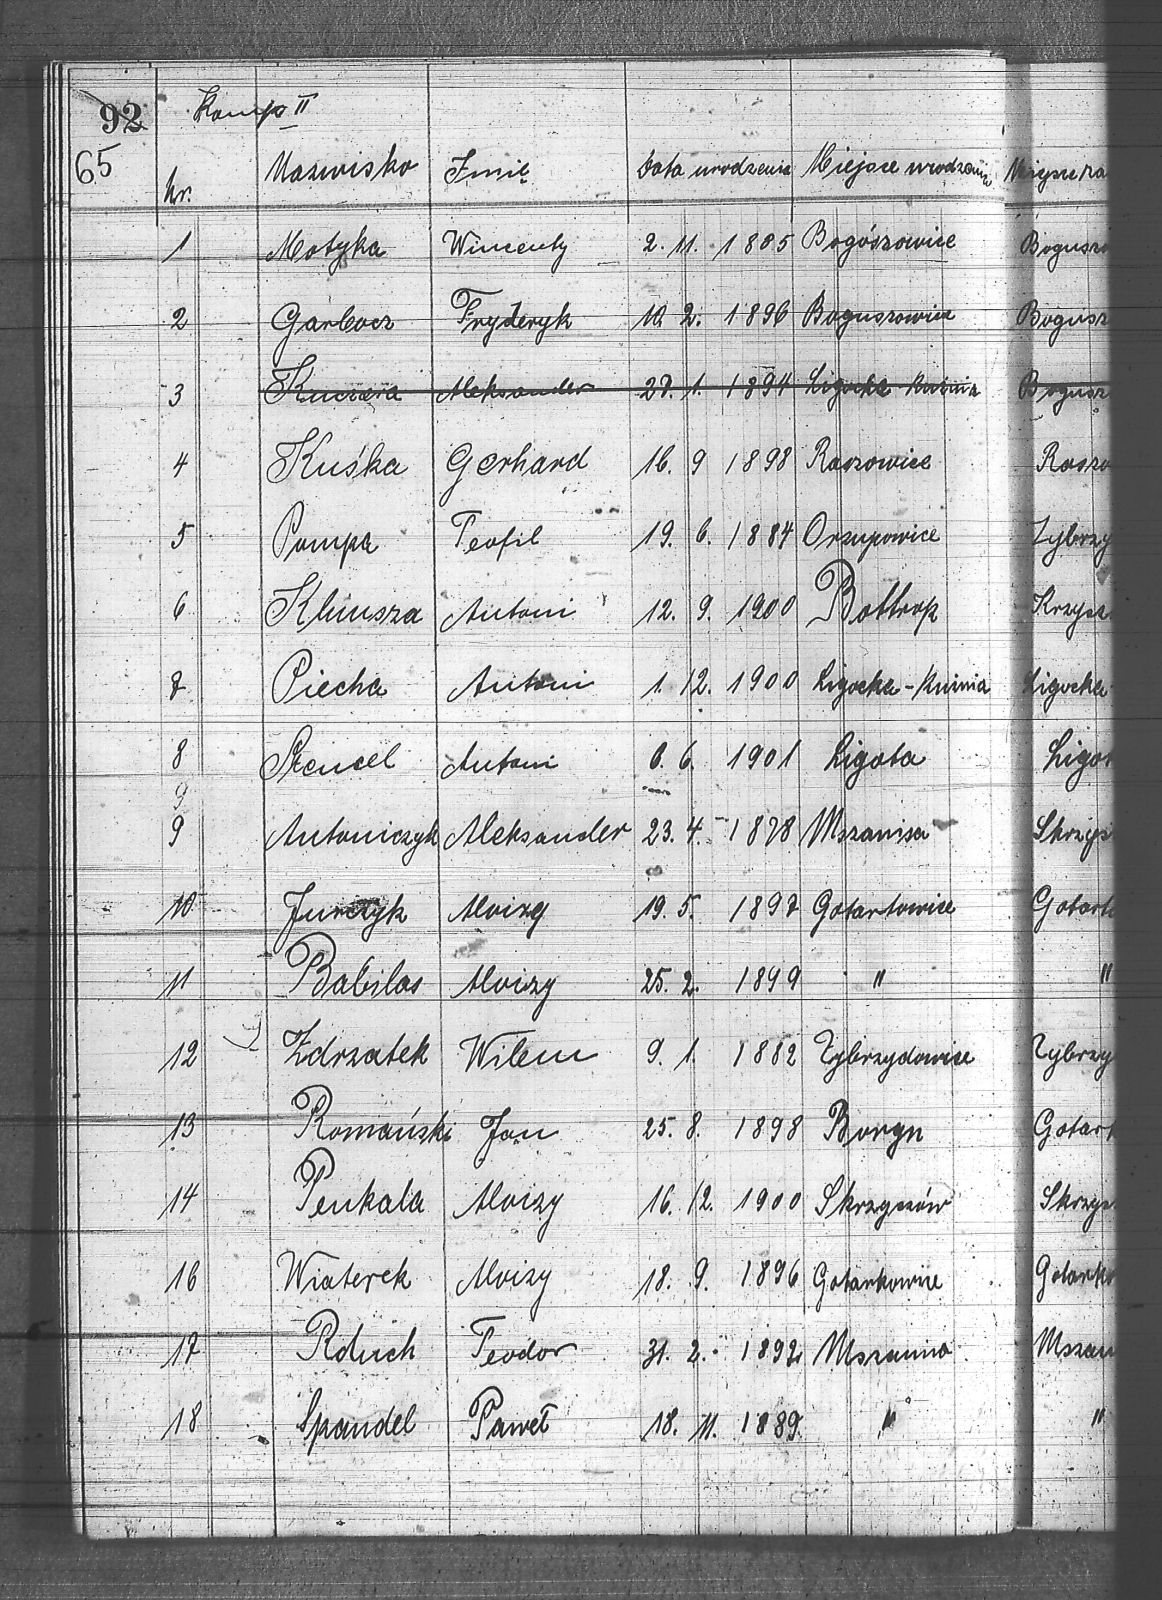 92
Komp II
65
Nr. Nazwisko Imię Data urodzenia Miejsce urodzenia
1 Motyka Wincenty 2. 11. 1885 Bogószowice
2 Garbocz Fryderyk 10. 2. 1896 Boguszowice Bogusz
3 Kuczera Aleksander 1. 1894 Ligocka Kuźnia Bogusz
4 Kuśka Gerhard 16. 9 1898 Roszowice Roszo
5 Pompa Teofil 19. 6. 1884 Orzupowice
6 Klimsza Antoni 12. 9. 1900 Bottrop
7 Piecha Antoni 1. 12. 1900 Ligocka-Kuźnia Ligocka
8 Antoni 6. 1901 Ligota Ligo
9
9 Antończyk Aleksander 23. 4. 1878 Mszanisa
10 Jurczyk Aloizy 19. 5. 1897 Gotartowice Gotart
11 Babilas Aloizy 25. 2. 1899 " "
12 Zdrzałek Wilem 9. 1. 1882 Zybrzydowice Zybrzy
13 Romański Jan 25. 8. 1898 Boryn Gotart
14 Penkala Aloizy 16. 12. 1900 Skrzyszów Skrzys
16 Wiaterek Aloizy 18. 9. 1896 Gotarkowice Gotarko
17 Rduch Teodor 31. 2. 1892 Mszanna Mszan
18 Spandel Paweł 18. 11. 1889. " "